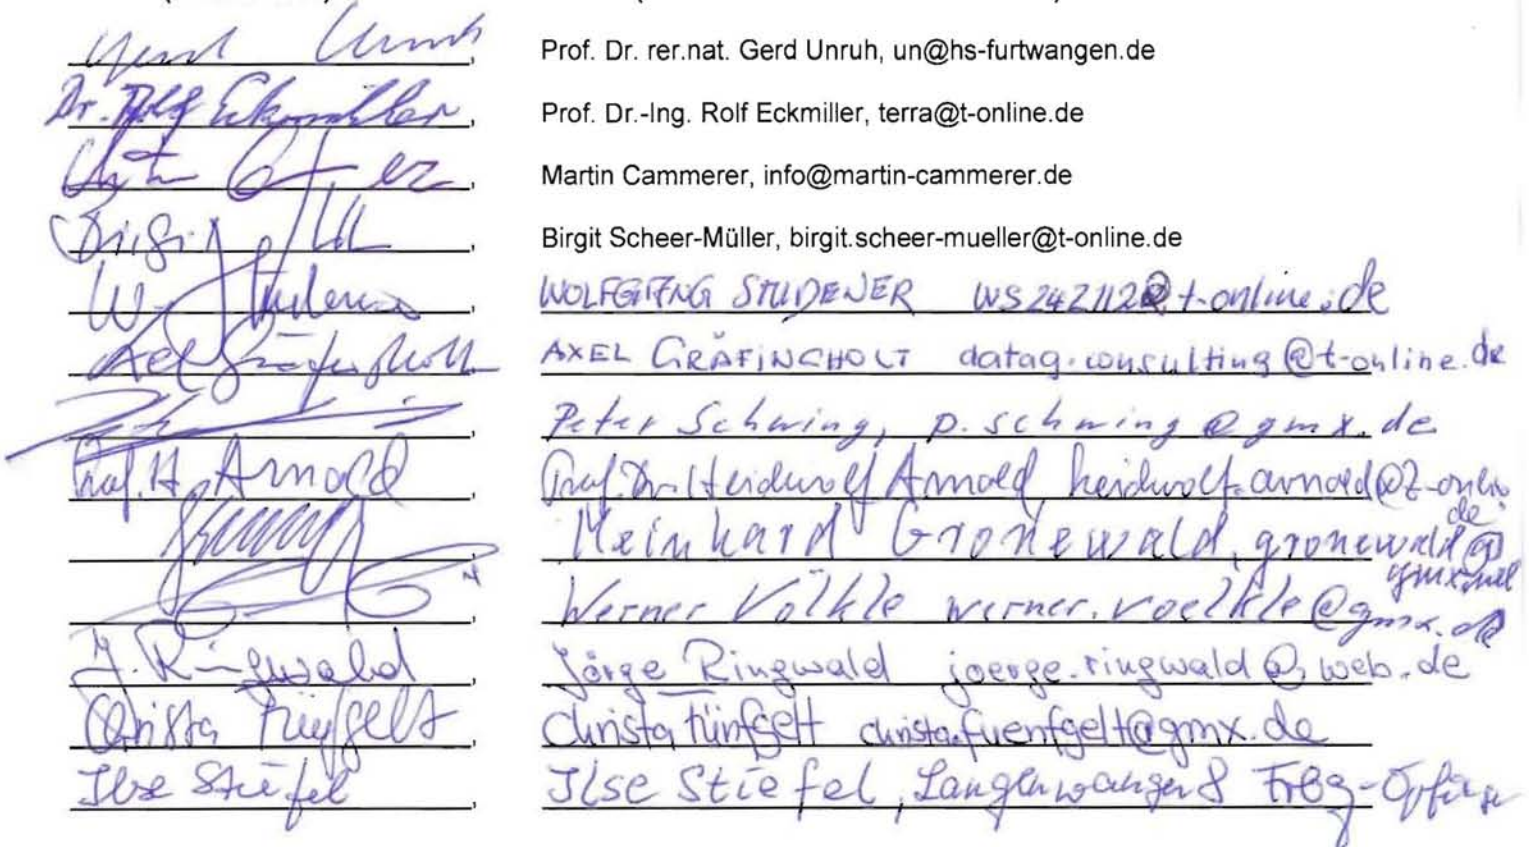 Gerd Unruh, Prof. Dr. rer.nat. Gerd Unruh, un@hs-furtwangen.de
Dr. Rolf Eckmiller, Prof. Dr.-Ing. Rolf Eckmiller, terra@t-online.de
Martin Cammerer, info@martin-cammerer.de
Birgit Scheer-Müller, birgit.scheer-mueller@t-online.de
W. Studener, WOLFGANG STUDENER ws242112@t-online.de
Axel Gräfingholt AXEL GRÄFINGHOLT datag.consulting@t-online.de
Peter Schwing, p.schwing@gmx.de
Prof. H. Arnold, Prof. Dr. Heidwolf Arnold heidwolf.arnold@t-online.de
Meinhard Gronewald, gronewald@gmx.net
Werner Völkle werner.voelkle@gmx.de
J. Ringwald, Jörge Ringwald joerge.ringwald@web.de
Christa Fünfgelt, Christa Fünfgelt christa.fuenfgelt@gmx.de
Ilse Stiefel, Ilse Stiefel, Langenwangen 8 Frbg-Opfingen